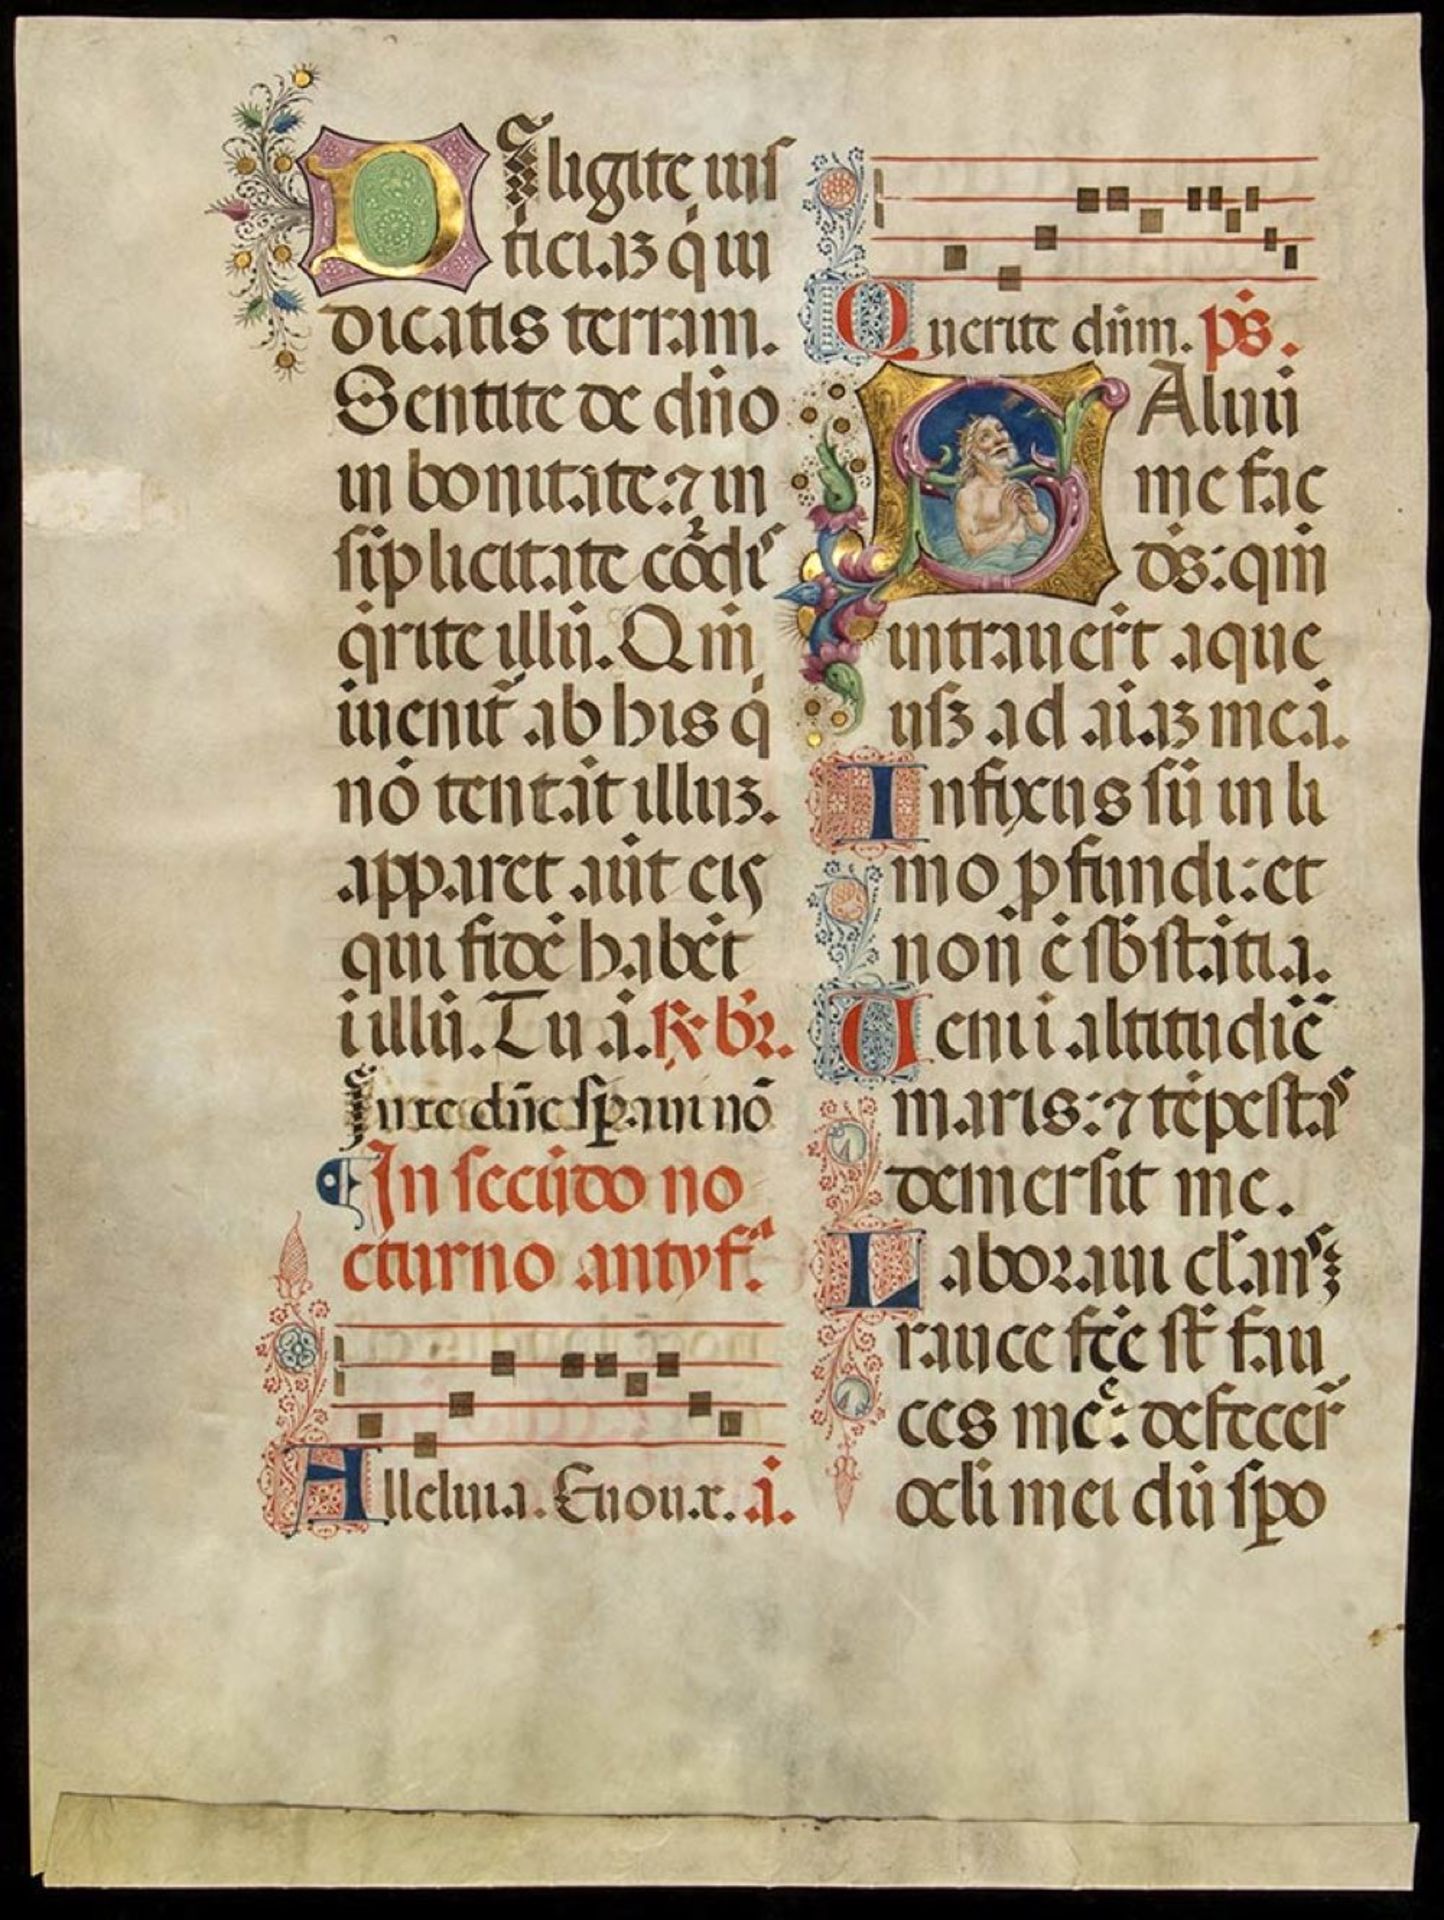 Diligite ius
ticiaʒ q̇ iu
dicatis terram.
Sentite de dn̄o
in bonitate: ⁊ in
sīplicitate cōdis
q̇rite illū. Qm̄
iuenit̄ ab his q̇
nō tentāt illuʒ.
apparet aūt eis
qui fidē habēt
i illū. Tu a. ℟. br̄.
In te dn̄e sꝑaui nō
In secūdo no
cturno antyf.ᵃ
Alleluia. Euouae. a.
Querite dn̄m. ps̄.
SAluū
me fac
ds̄: qm̄
intrauer̄t aque
usʒ ad aiaʒ meā.
Infixus sū in li
mo ꝓfundi: et
non ē sb̄stātia.
Ueni ī altitudiē
maris: ⁊ tēpestas
demersit me.
Laboraui clāns
rauce fcē sт̄ fau
ces meᵉ: defecer̄
ocli mei dū sꝑo